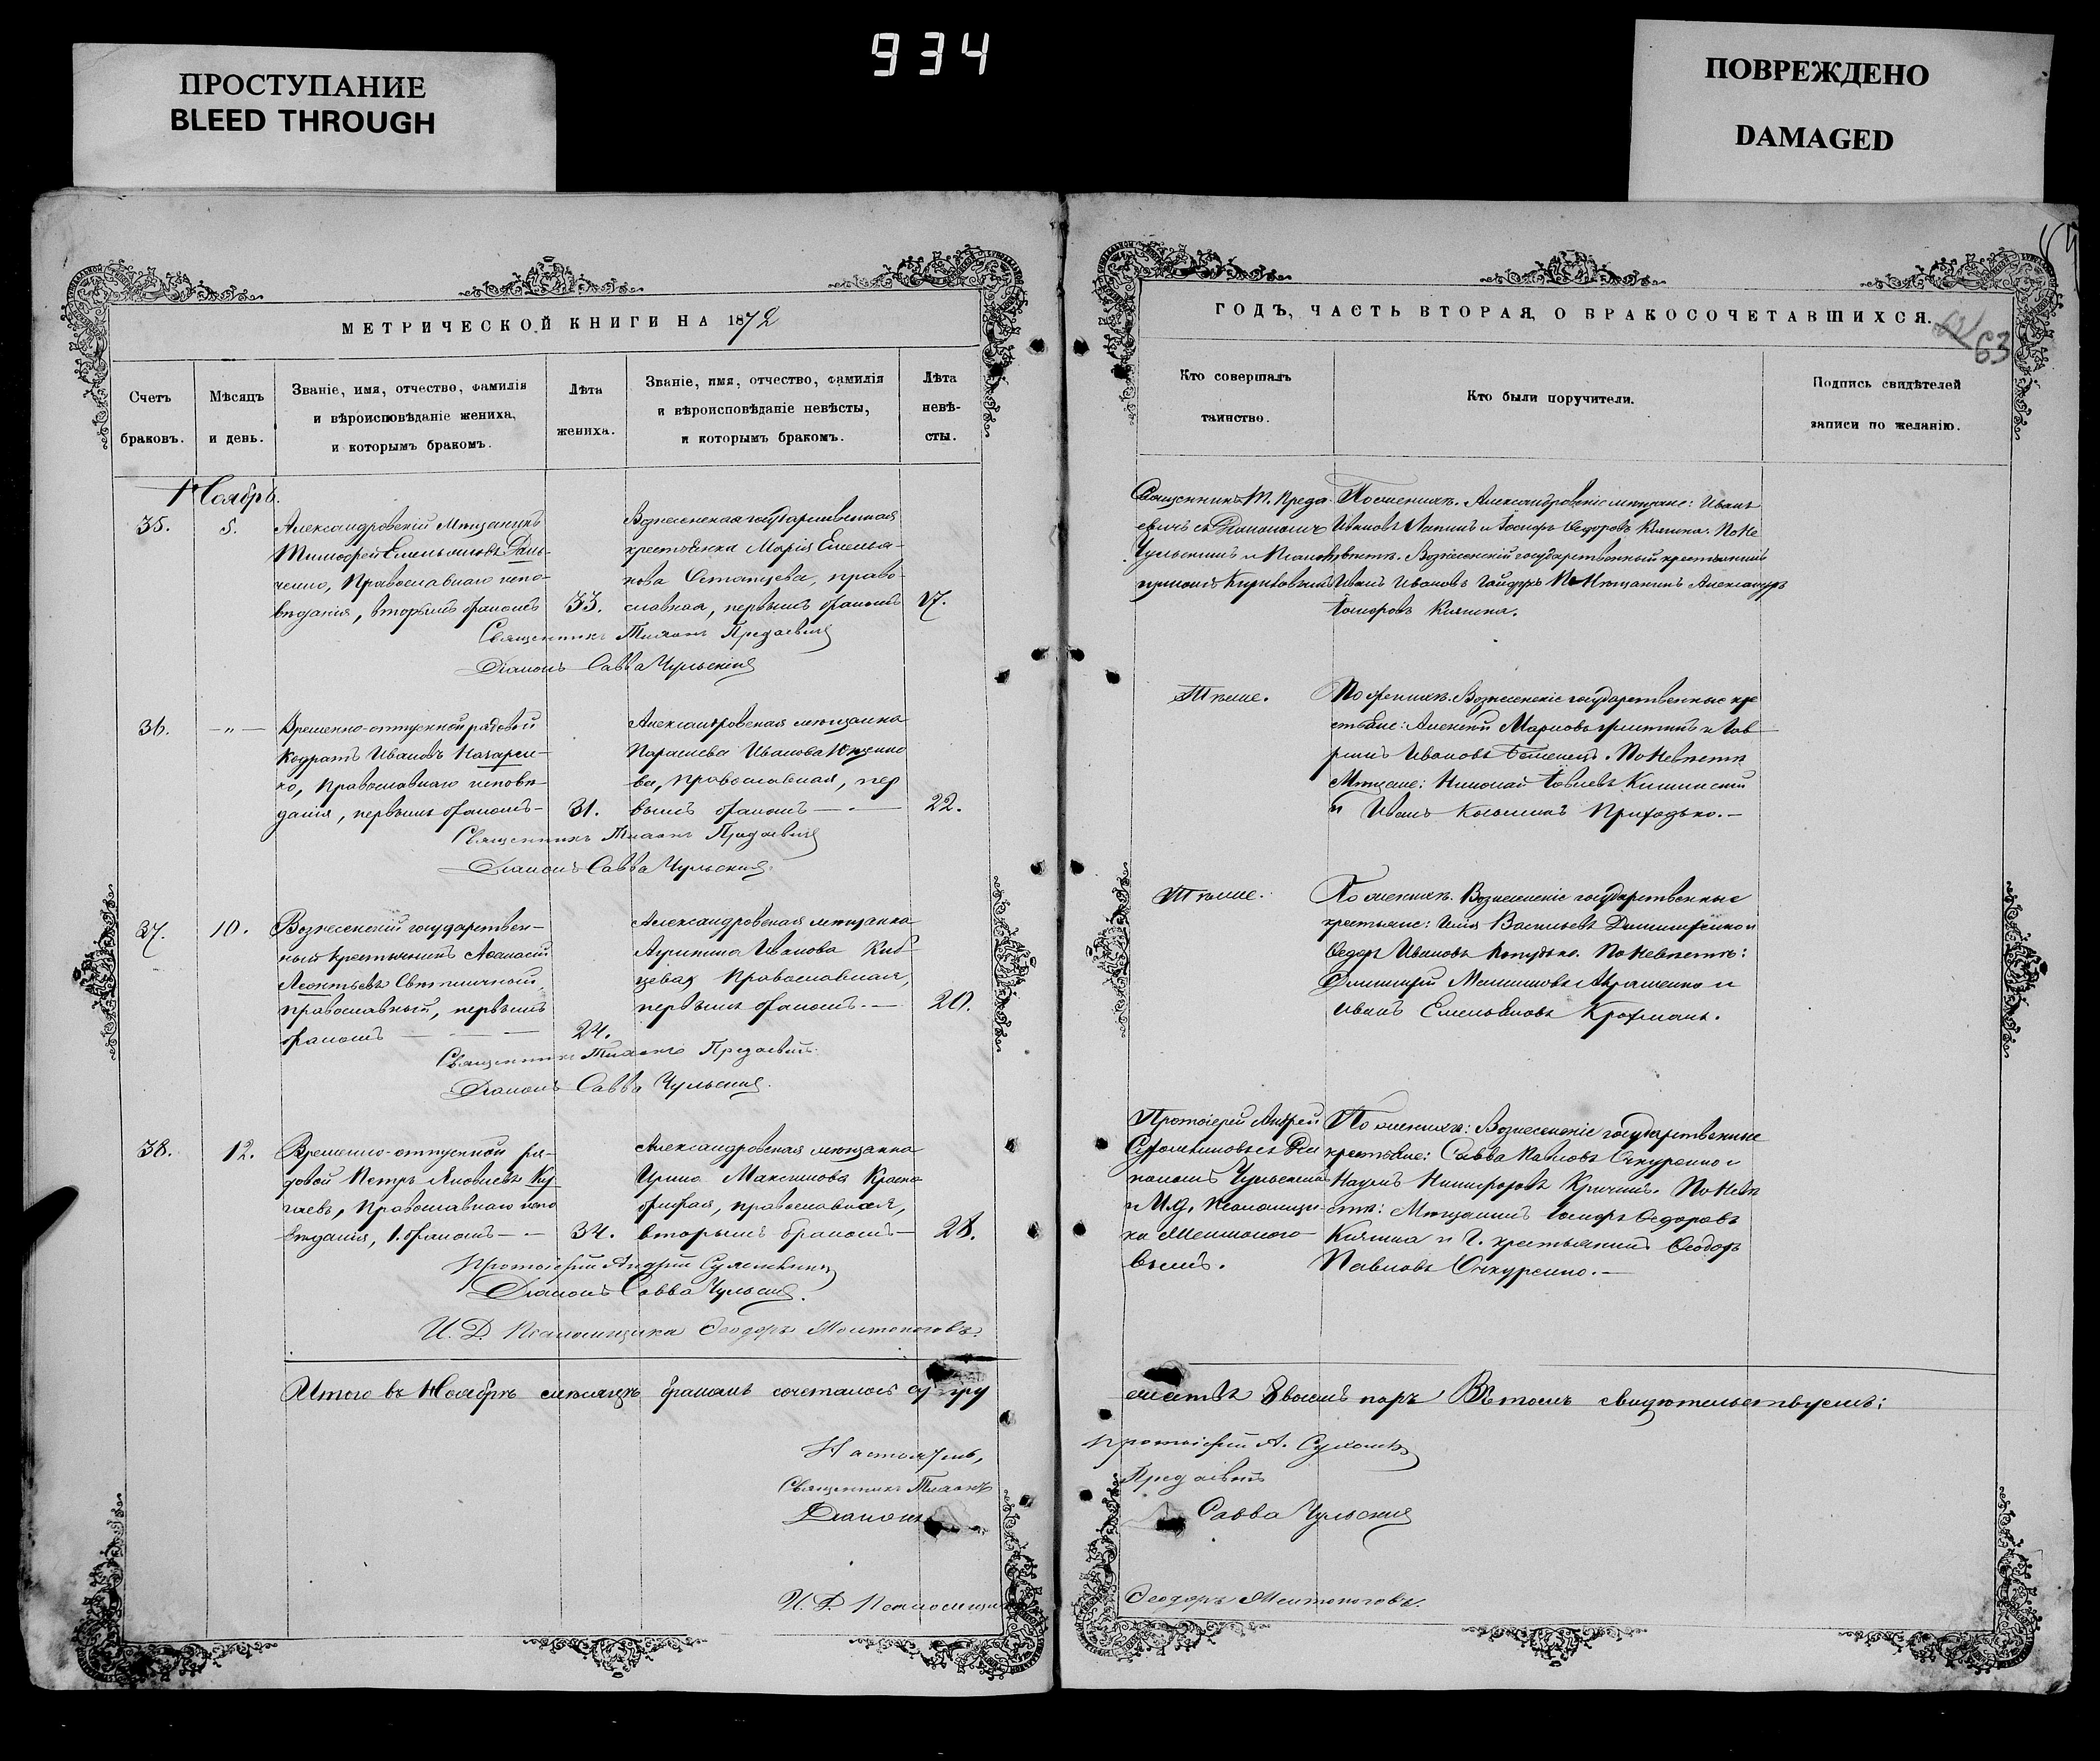 934
ПРОСТУПАНИЕ
BLEED THROUGH
ПОВРЕЖДЕНО
DAMAGED
МЕТРИЧЕСКОЙ КНИГИ НА 1872
Счетъ
браковъ.
Мѣсяцъ
и день.
Званіе, имя, отчество, фамилія
и вѣроисповѣданіе жениха,
и которымъ бракомъ.
Лѣта
жениха.
Званіе, имя, отчество, фамилія
и вѣроисповѣданіе невѣсты,
и которымъ бракомъ.
Лѣта
невѣ-
сты.
Ноябрь.
35.
5.
Александровскій Мѣщанинъ
Тимофей Емельяновъ Дань-
ченко, Православнаго испо-
вѣданія, вторымъ бракомъ
33.
Вознесенская государственная
крестьянка Марія Емелья-
нова Остапцева, право-
славная, первымъ бракомъ
17.
Священникъ Тихонъ Предаевичъ
Діаконъ Савва Чульскій
36.
— " —
Временно-отпускной рядовой
Кодратъ Ивановъ Назарен-
ко, Православнаго исповѣ-
данія, первымъ бракомъ —
31.
Александровская мѣщанка
Параскева Иванова Ющенко
ва, православная, пер
вымъ бракомъ —
22.
Священникъ Тихонъ Предаевичъ
Діаконъ Савва Чульскій
37.
10.
Вознесенскій государствен-
ный крестьянинъ Аѳанасій
Леонтьевъ Свѣтличный,
православный, первымъ
бракомъ —
24.
Александровская мѣщанка
Иванова
Православная,
первымъ бракомъ. —
20.
Священникъ Тихонъ Предаевичъ
Діаконъ Савва Чульскій
38.
12.
Временно-отпускной ря-
довой Петръ Яковлевъ Ку
гаевъ, Православнаго испо
вѣданія, 1. бракомъ —
34.
Александровская мѣщанка
Ирина Максимова Красно
православная,
вторымъ бракомъ —
28.
Протоіерей Андрей
Діаконъ Савва Чульскій.
И. Д. Псаломщика Ѳеодоръ Желтоноговъ.
Итого въ Ноябрѣ мѣсяцѣ бракомъ сочеталось супру
Настоятель,
Священникъ Тихонъ
Діаконъ
И. Д. Псаломщика
ГОДЪ, ЧАСТЬ ВТОРАЯ, О БРАКОСОЧЕТАВШИХСЯ.
63
Кто совершалъ
таинство.
Кто были поручители.
Подпись свидѣтелей
записи по желанію.
Священникъ Т. Преда-
евичъ съ Діакономъ
Чульскимъ и Псалом
щикомъ
По женихѣ. Александровскіе мѣщане: Иванъ
Ивановъ Лапинъ и Іосифъ Ѳедоровъ Кияшка. По не
вѣстѣ. Вознесенскій государственный крестьянинъ
Иванъ Ивановъ Гайдукъ и Мѣщанинъ Александръ
Кияшка.
Тѣ же.
По женихѣ. Вознесенскіе государственные кре
стьяне: Алексѣй Марковъ и Гав
ріилъ Ивановъ По Невѣстѣ
Мѣщане: Николай
и Иванъ Козьминъ Приходько. —
Тѣ же.
По женихѣ. Вознесенскіе государственные
крестьяне: Илія Васильевъ и
Ѳедоръ Ивановъ По Невѣстѣ:
Димитрій и
Иванъ Емельяновъ
Протоіерей Андрей
съ Діа
кономъ Чульскимъ
и И. д. Псаломщи-
ка Желтоного-
вымъ.
По женихѣ: Вознесенскіе государственные
крестьяне: Савва Павловъ Очкуренко и
Наумъ Никифоровъ По Невѣ
стѣ: Мѣщанинъ Іосифъ Ѳедоровъ
Кияшка и Г. крестьянинъ Ѳеодоръ
Павловъ Очкуренко. —
8 восемь паръ Въ томъ свидѣтельствуемъ:
Протоіерей А.
Предаевичъ
Савва Чульскій
Ѳеодоръ Желтоноговъ.